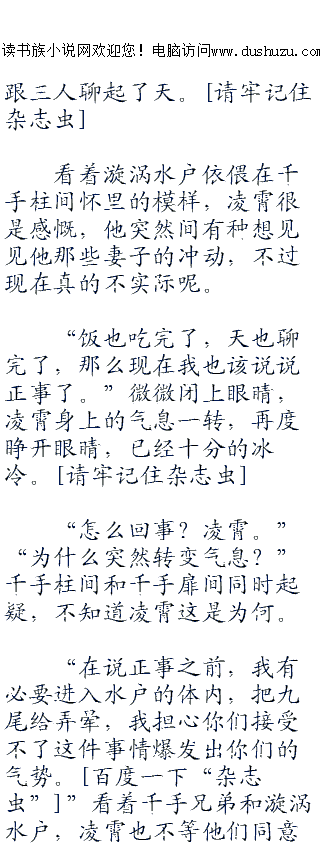 读书族小说网欢迎您！电脑访问www.dushuzu.com
跟三人聊起了天。[请牢记住
杂志虫]
看着漩涡水户依偎在千
手柱间怀里的模样，凌霄很
是感慨，他突然间有种想见
见他那些妻子的冲动，不过
现在真的不实际呢。
“饭也吃完了，天也聊
完了，那么现在我也该说说
正事了。”微微闭上眼睛，
凌霄身上的气息一转，再度
睁开眼睛，已经十分的冰
冷。[请牢记住杂志虫]
“怎么回事？凌霄。”
“为什么突然转变气息？”
千手柱间和千手扉间同时起
疑，不知道凌霄这是为何。
“在说正事之前，我有
必要进入水户的体内，把九
尾给弄晕，我担心你们接受
不了这件事情爆发出你们的
气势。[百度一下“杂志
虫”]”看着千手兄弟和漩涡
水户，凌霄也不等他们同意